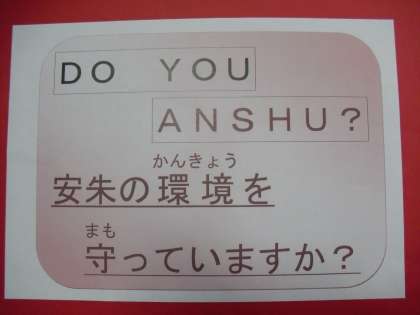 DO YOU
ANSHU?
かんきょう
安朱の環境を
まも
守っていますか？